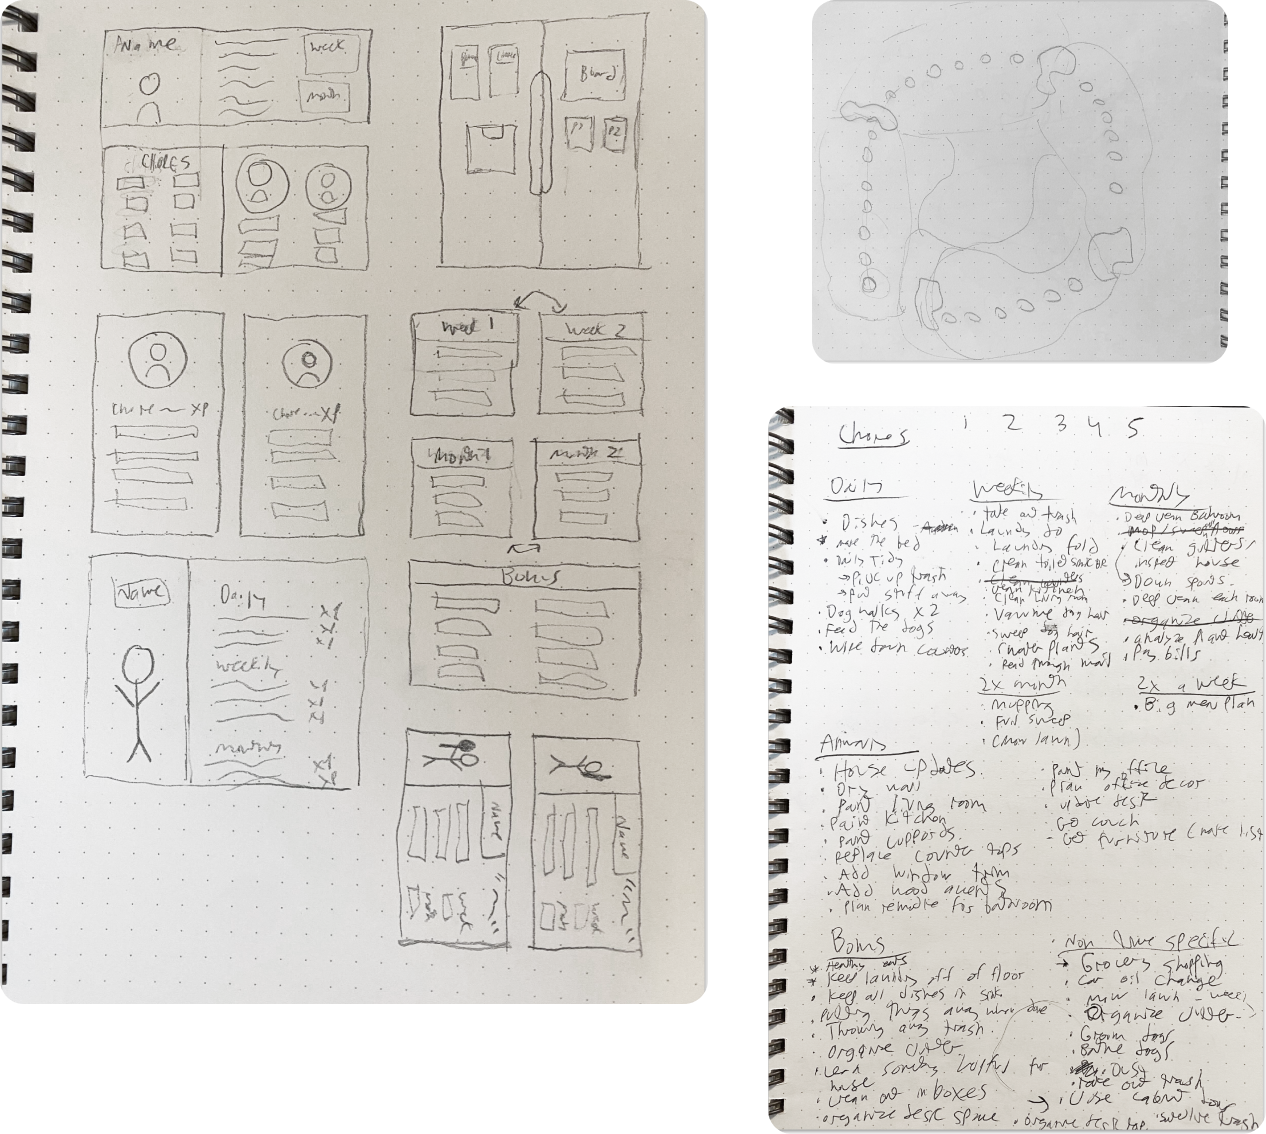 Name
week
month
CHORES
Board
P1
P2
Chore XP
Chore XP
week 1
week 2
Month 1
Month 2
Bonus
Name
Daily
weekly
monthly
Name
week
Name
week
Chores
1 2 3 4 5
Daily
• Dishes -
* make the bed
• Daily Tidy
→ pick up trash
→ put stuff away
• Dog walks x2
• Feed the dogs
• wipe down counters
weekly
• take out trash
• Laundry do
• Laundry fold
• clean toilet sink BR
• clean Living room
• Vacuum dog hair
• sweep dog hair
• water plants
• Read through mail
2x month
• mopping
• Full sweep
• (mow lawn)
monthly
• Deep clean Bathroom
mop/
• Clean gutters/
inspect house
→ Down spouts.
• Deep clean each room
organize
• analyze plant
• Pay bills
2x a week
• Big menu Plan
Annuals
• House updates
• Dry wall
• Paint living room
• Paint Kitchen
• paint cupboards
• replace counter tops
• Add window trim
• Add wood accents
• Plan remodle for bathroom
paint my office
• plan office decor
• desk
• Go couch
- Get furniture (make list
Bonus
* Healthy eats
* Keep laundry off of floor
• Keep all dishes in sink
• Putting things away when done
• Throwing away trash
• organize clutter
• Learn something helpful for
house
• clean out inboxes
• organize desk space
Non time specific
→ Grocery shopping
• Car oil change
• mow lawn - week
• Organize clutter -
• Groom dogs
• Bathe dogs
• Dust
• take out trash
• organize desk top